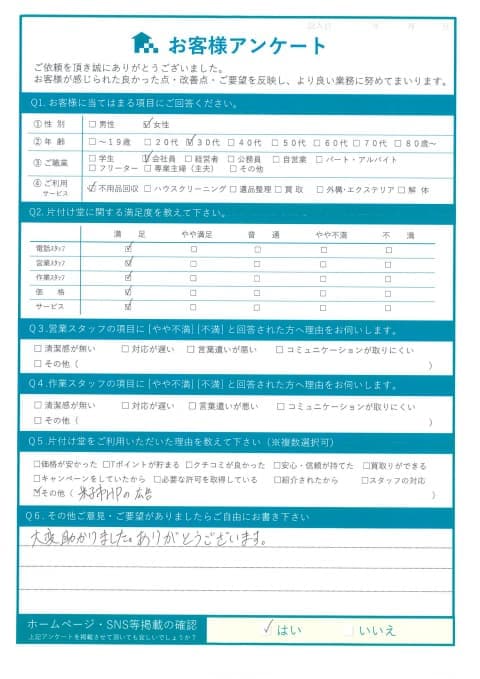 記入日 年 月 日
お客様アンケート
ご依頼を頂き誠にありがとうございました。
お客様が感じられた良かった点・改善点・ご要望を反映し、より良い業務に努めてまいります。
Q1. お客様に当てはまる項目にご回答ください。
①性 別 □男性 ☑女性
②年 齢 □～19歳 □20代 ☑30代 □40代 □50代 □60代 □70代 □80歳～
③ご職業 □学生 ☑会社員 □経営者 □公務員 □自営業 □パート・アルバイト
□フリーター □専業主婦（主夫） □その他
④ご利用サービス ☑不用品回収 □ハウスクリーニング □遺品整理 □買取 □外構・エクステリア □解体
Q2. 片付け堂に関する満足度を教えて下さい。
満足 やや満足 普通 やや不満 不満
電話スタッフ ☑ □ □ □ □
営業スタッフ ☑ □ □ □ □
作業スタッフ ☑ □ □ □ □
価格 ☑ □ □ □ □
サービス ☑ □ □ □ □
Q3.営業スタッフの項目に[やや不満][不満]と回答された方へ理由をお伺いします。
□清潔感が無い □対応が遅い □言葉遣いが悪い □コミュニケーションが取りにくい
□その他（ ）
Q4.作業スタッフの項目に[やや不満][不満]と回答された方へ理由をお伺いします。
□清潔感が無い □対応が遅い □言葉遣いが悪い □コミュニケーションが取りにくい
□その他（ ）
Q5.片付け堂をご利用いただいた理由を教えて下さい（※複数選択可）
□価格が安かった □Tポイントが貯まる □クチコミが良かった □安心・信頼が持てた □買取りができる
□キャンペーンをしていたから □必要な許可を取得している □紹介されたから □スタッフの対応
☑その他（ 米子市HPの広告 ）
Q6. その他ご意見・ご要望がありましたらご自由にお書き下さい
大変助かりました。ありがとうございます。
ホームページ・SNS等掲載の確認
上記アンケートを掲載させて頂いても宜しいでしょうか？
☑はい □いいえ